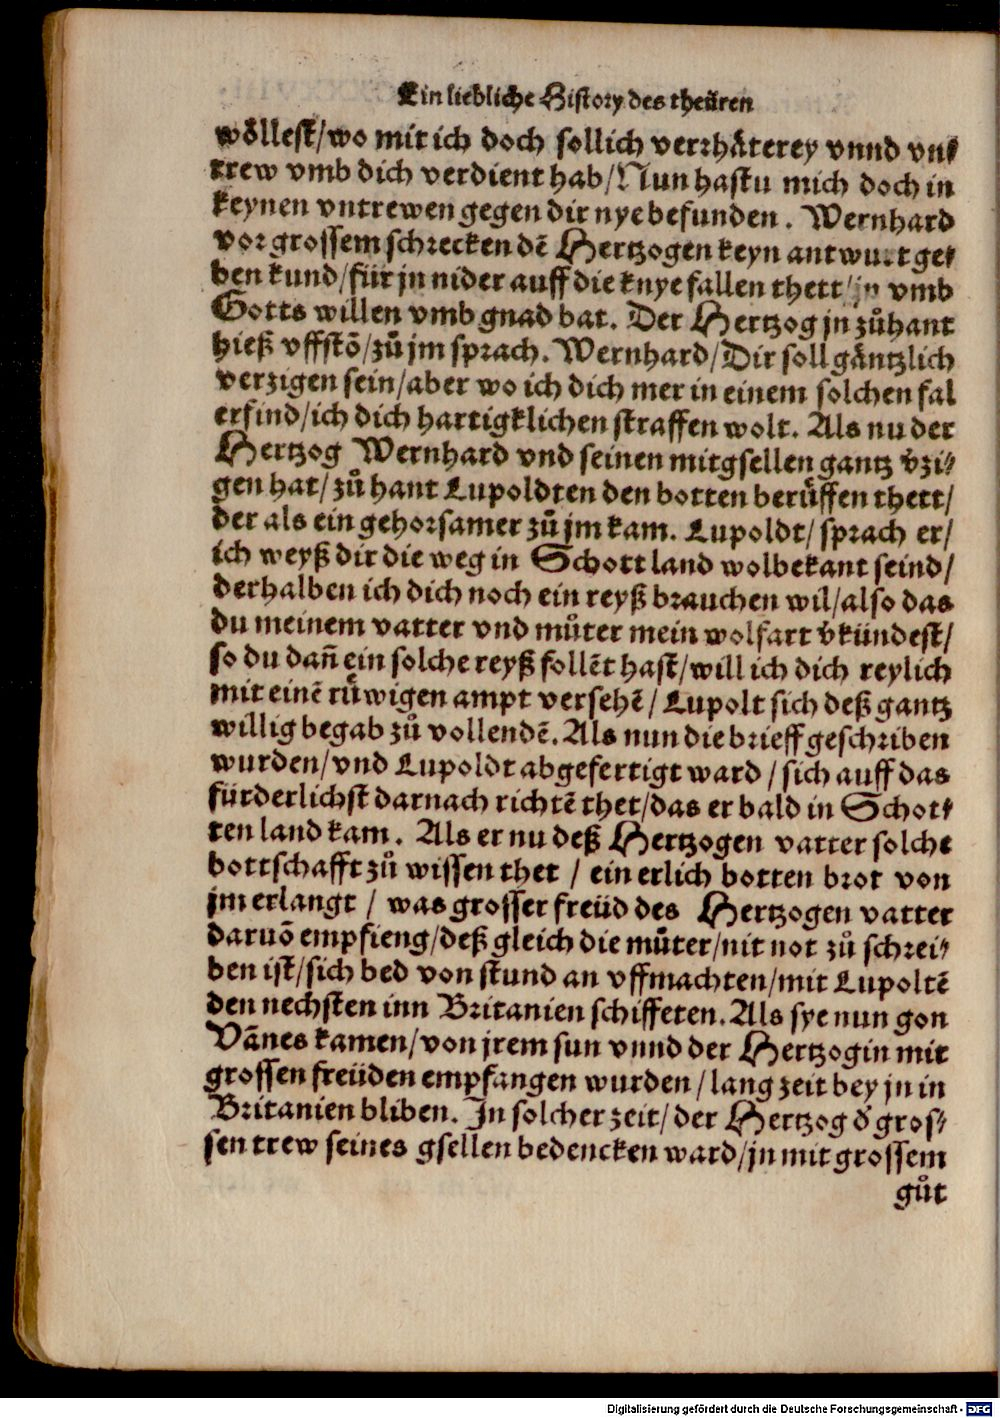 Ein liebliche History des theüren
wöllest/wo mit ich doch sollich verrhäterey vnnd vn⸗
trew vmb dich verdient hab/Nun hastu mich doch in
keynen vntrewen gegen dir nye befunden. Wernhard
vor grossem schrecken dē Hertzogen keyn antwurt ge⸗
ben kund/für jn nider auff die knye fallen thett/jn vmb
Gotts willen vmb gnad bat. Der Hertzog jn zůhant
hieß vffstō/zů jm sprach. Wernhard/Dir soll gäntzlich
verzigen sein/aber wo ich dich mer in einem solchen fal
erfind/ich dich hartigklichen straffen wolt. Als nu der
Hertzog Wernhard vnd seinen mitgsellen gantz v̄zi⸗
gen hat/zů hant Lupoldten den botten berüffen thett/
der als ein gehorsamer zů jm kam. Lupoldt/sprach er/
ich weyß dir die weg in Schott land wolbekant seind/
derhalben ich dich noch ein reyß brauchen wil/also das
du meinem vatter vnd můter mein wolfart v̄kündest/
so du dañ ein solche reyß follēt hast/will ich dich reylich
mit einē rüwigen ampt versehē/Lupolt sich deß gantz
willig begab zů vollendē. Als nun die brieff geschriben
wurden/vnd Lupoldt abgefertigt ward/sich auff das
fürderlichst darnach richtē thet/das er bald in Schot⸗
ten land kam. Als er nu deß Hertzogen vatter solche
bottschafft zů wissen thet/ein erlich botten brot von
jm erlangt/was grosser freüd des Hertzogen vatter
daruō empfieng/deß gleich die můter/nit not zů schrei⸗
ben ist/sich bed von stund an vffmachten/mit Lupoltē
den nechsten inn Britanien schiffeten. Als sye nun gon
Vānes kamen/von jrem sun vnnd der Hertzogin mit
grossen freüden empfangen wurden/lang zeit bey jn in
Britanien bliben. In solcher zeit/der Hertzog d̄ gros⸗
sen trew seines gsellen bedencken ward/jn mit grossem
gůt
Digitalisierung gefördert durch die Deutsche Forschungsgemeinschaft - DFG